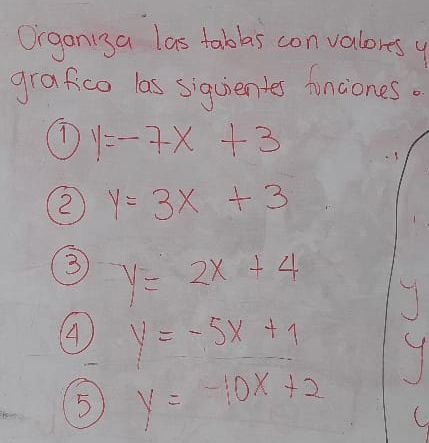 Organiza las tablas con valores y
grafico las siguientes funciones.
① y=-7x +3
② y= 3x +3
③ y= 2x +4
④ y= -5x +1
⑤ y= -10x +2
y
y